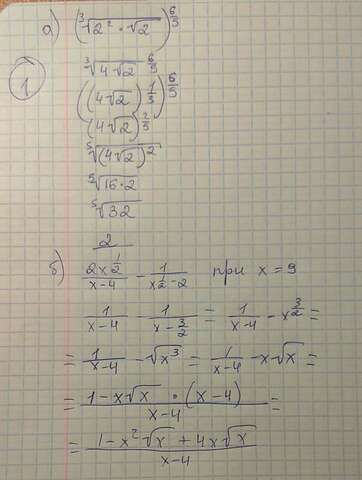 а) (∛(2² · √2))^(6/5)
① ∛(4√2)^(6/5)
((4√2)^(1/3))^(6/5)
(4√2)^(2/5)
⁵√((4√2)²)
⁵√(16·2)
⁵√32
2
б) (2x^(1/2))/(x-4) - 1/(x^(1/2)-2) при x = 9
1/(x-4) - 1/(x-3/2) = 1/(x-4) - x^(3/2) =
= 1/(x-4) - √(x³) = 1/(x-4) - x√x =
= (1-x√x · (x-4))/(x-4) =
= (1-x²√x + 4x√x)/(x-4)